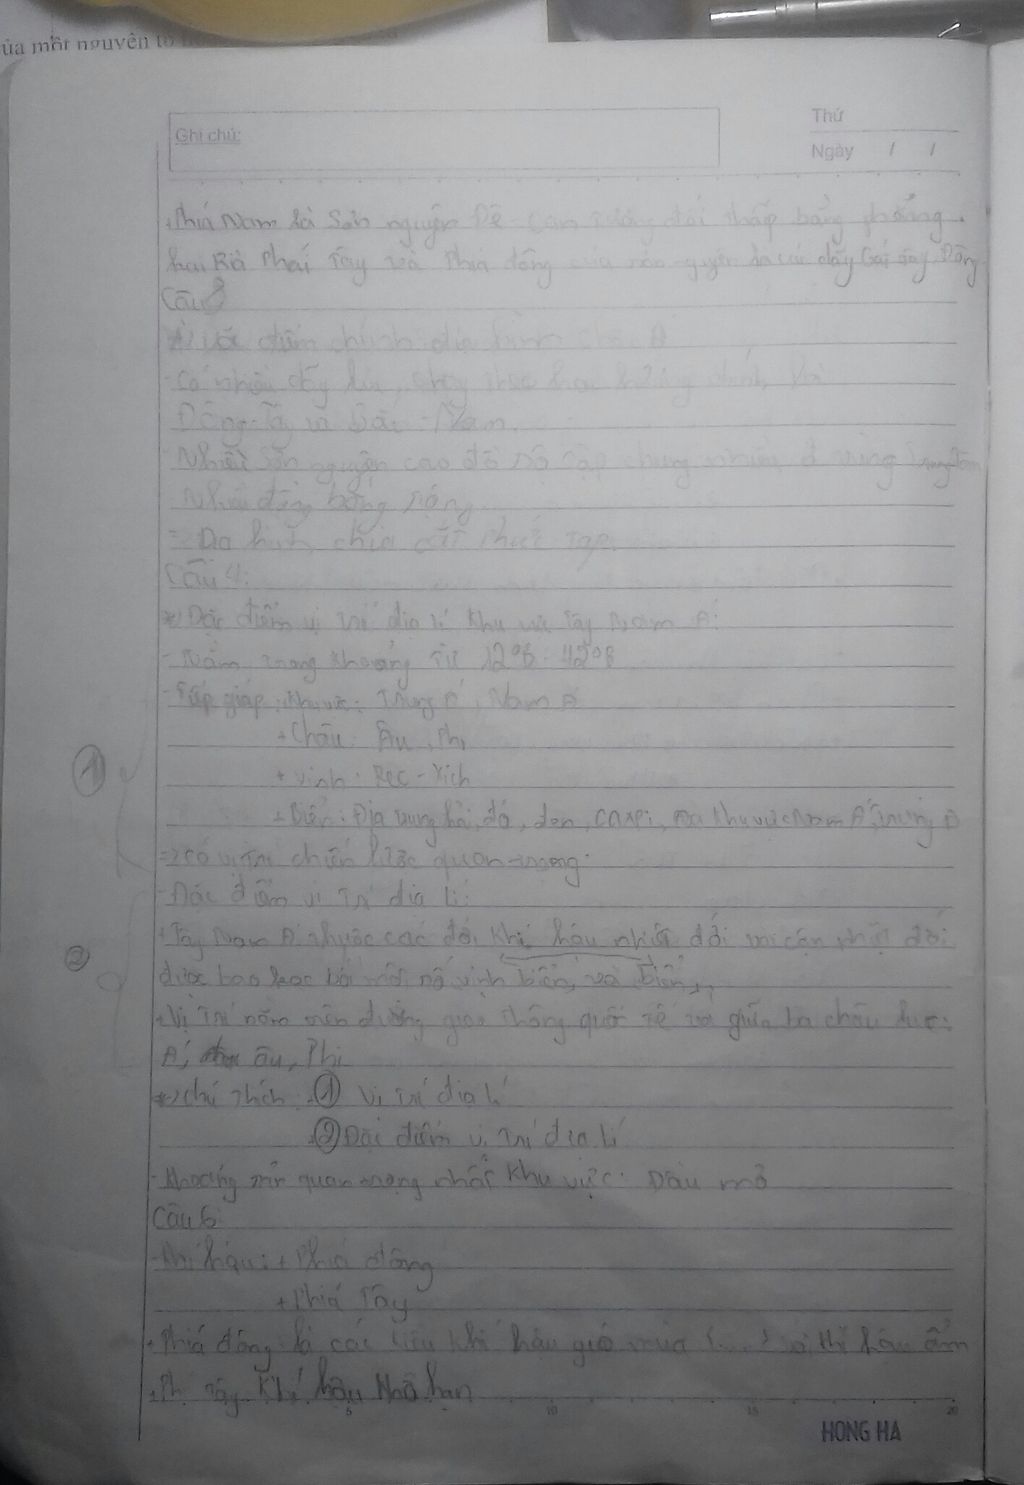 ủa một nguyên tố
Ghi chú:
Thứ
Ngày / /
+Phía Nam là Sơn nguyên Đê-can tương đối thấp bằng phẳng.
hai Rìa Phía Tây và Phía đông của sơn nguyên là các dãy Gát Tây Đông
Câu 3
đặc điểm chính địa hình Châu Á
- Có nhiều dãy núi, chạy theo hai hướng chính
Đông-Tây và Bắc-Nam.
Nhiều Sơn nguyên cao đồ sộ tập chung nhiều ở vùng trung tâm
Nhiều đồng bằng rộng
=> Địa hình chia cắt Phức tạp
Câu 4:
*) Đặc điểm vị trí địa lí khu vực Tây Nam Á:
- Nằm trong khoảng từ 12°B - 42°B
- Tiếp giáp: khu vực: Trung Á, Nam Á
+ Châu: Âu, Phi
+ vịnh: Pec-Xích
+ Biển: Địa trung hải, đỏ, đen, caxpi, khu vực Nam Á, Trung Á
=> có vị trí chiến lược quan trọng.
- Đặc điểm vị trí địa lí:
+ Tây Nam Á thuộc các đới khí hậu nhiệt đới và cận nhiệt đới
được bao bọc bởi một số vịnh biển, và biển,
+ Vị trí nằm trên đường giao thông quốc tế và giữa ba châu lục:
Á, âu, Phi
*) chú thích: ① Vị trí địa lí
② Đặc điểm vị trí địa lí
- Khoáng sản quan trọng nhất khu vực: Dầu mỏ
Câu 6:
- Khí hậu: + Phía đông
+ Phía Tây
+ Phía đông là các kiểu khí hậu gió mùa (...) khí hậu ẩm
+ Ph Tây Khí hậu khô hạn
①
②
5 10 15 20
HONG HA